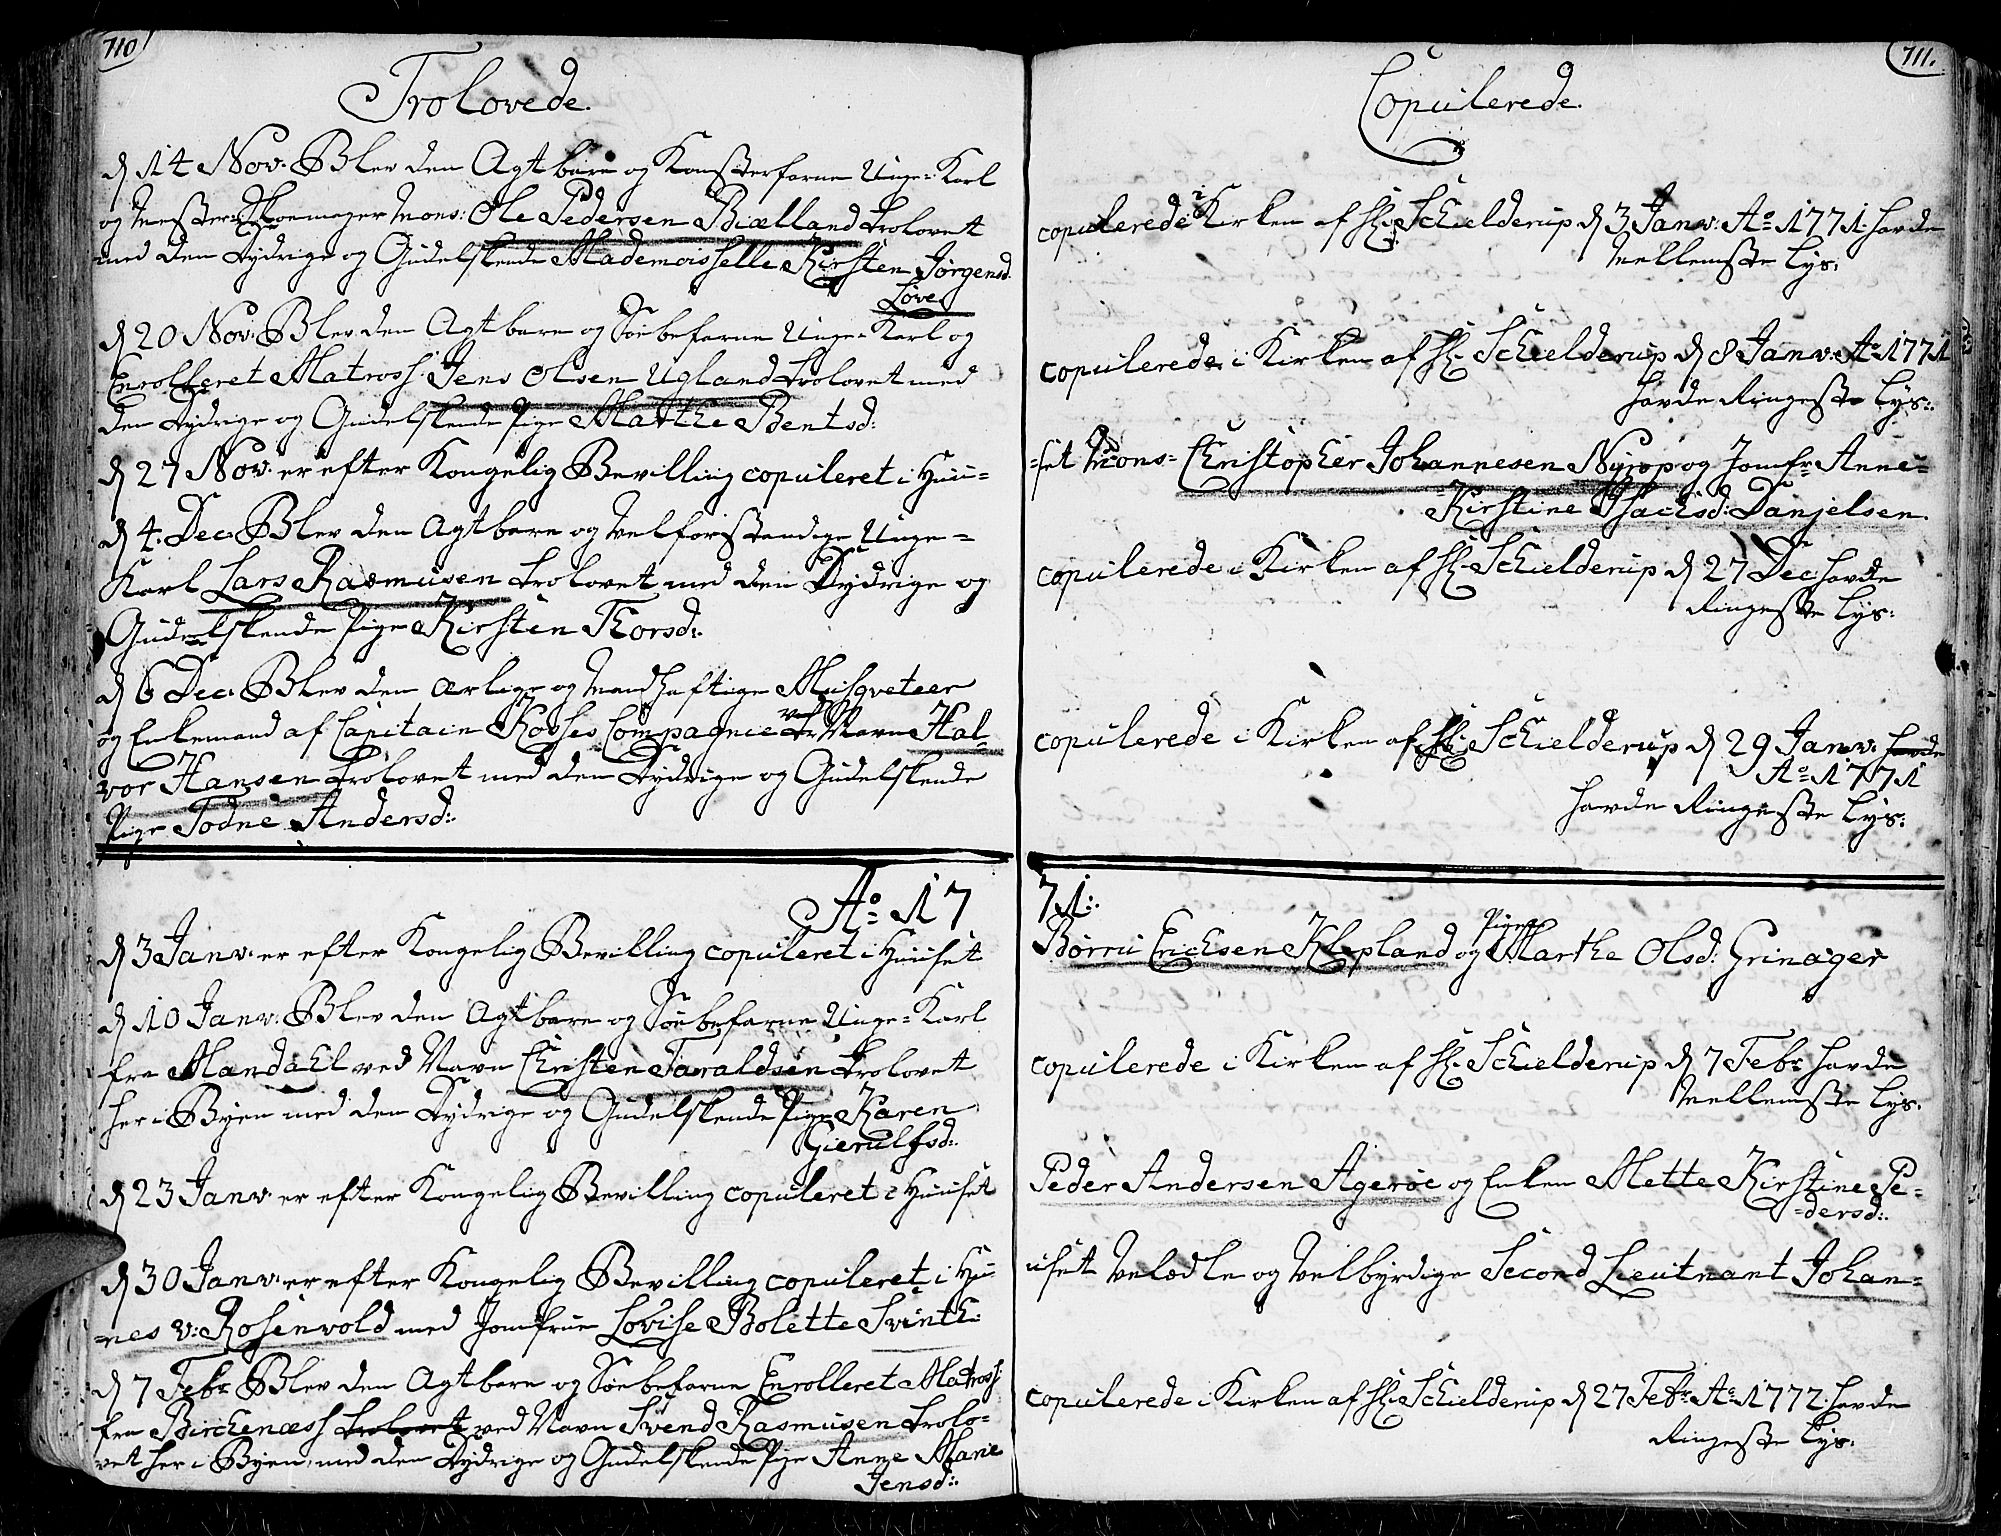 710
Trolovede.
d 14 Nov: Blev den Agtbare og Konsterfarne Unge-Karl
og Mester Skoemager Mons: Ole Pedersen Biælland trolovet
med den Dydrige og Gudelskende Mademoisselle Kirsten Jørgensd.
Løve.
d 20 Nov: Blev den Agtbare og Søebefarne Unge-Karl og
Enrolleret Matross: Jens Olsen Ugland trolovet med
den Dydrige og Gudelskende Pige Marthe Bentsd:
d 27 Nov: er efter Kongelig Bevilling copuleret i Huu=
d 4. Dec: Blev den Agtbare og Velforstandige Unge=
Karl Lars Rasmusen trolovet med den Dydrige og
Gudelskende Pige Kirsten Thorsd:
d 6 Dec: Blev den ærlige og Mandhaftige Musqveteer
og Enkemand af Capitain Kosses Compagnie ved Navn Hal=
vor Hansen trolovet med den Dydrige og Gudelskende
Pige Todne Andersd:
Ao 17
d 3 Janv: er efter Kongelig Bevilling copuleret i Huuset
d 10 Janv: Blev den Agtbare og Søebefarne Unge=Karl
fra Mandahl ved Navn Christen Taraldsen trolovet
her i Byen med den Dydrige og Gudelskende Pige Karen
Gierulfsd:
d 23 Janv: er efter Kongelig Bevilling copuleret i Huuset
d 30 Janv: er efter Kongelig Bevilling copuleret i Hu=
=nes v: Rosenvold med Jomfrue Lovise Bolette Svinth:
d 7 Febr: Blev den Agtbare og Søebefarne Enrolleret Matross
fra Birchenæss trolovet ved Navn Svend Rasmusen trolo=
vet her i Byen, med den Dydrige og Gudelskende Pige Anne Marie
Jensd:
711.
Copulerede.
copulerede i Kirken af Hr: Schielderup d 3 Janv: Ao 1771. havde
Mellemste Lys:
copulerede i Kirken af Hr: Schielderup d 8 Janv: Ao 1771
havde Ringeste Lys:
=set Mons= Christopher Johannesen Nyrop og Jomfr: Anne=
=Kirstine Isachsd: Danjelsen.
copulerede i Kirken af Hr: Schielderup d 27 Dec: havde
Ringeste Lys:
copulerede i Kirken af Hr: Schielderup d 29 Janv: havde
Ao 1771
havde Ringeste Lys:
71:
Børru Erichsen Klepland og Pigen Marthe Olsd: Grinager
copulerede i Kirken af Hr: Schielderup d 7 Febr: havde
Mellemste Lys.
Peder Andersen Agerøe og Enken Mette Kirstine Pe=
=dersd:
uset Velædle og Velbyrdige Second Lieutnant Johan=
copulerede i Kirken af Hr: Schielderup d 27 Febr: Ao 1772. havde
Ringeste Lys.